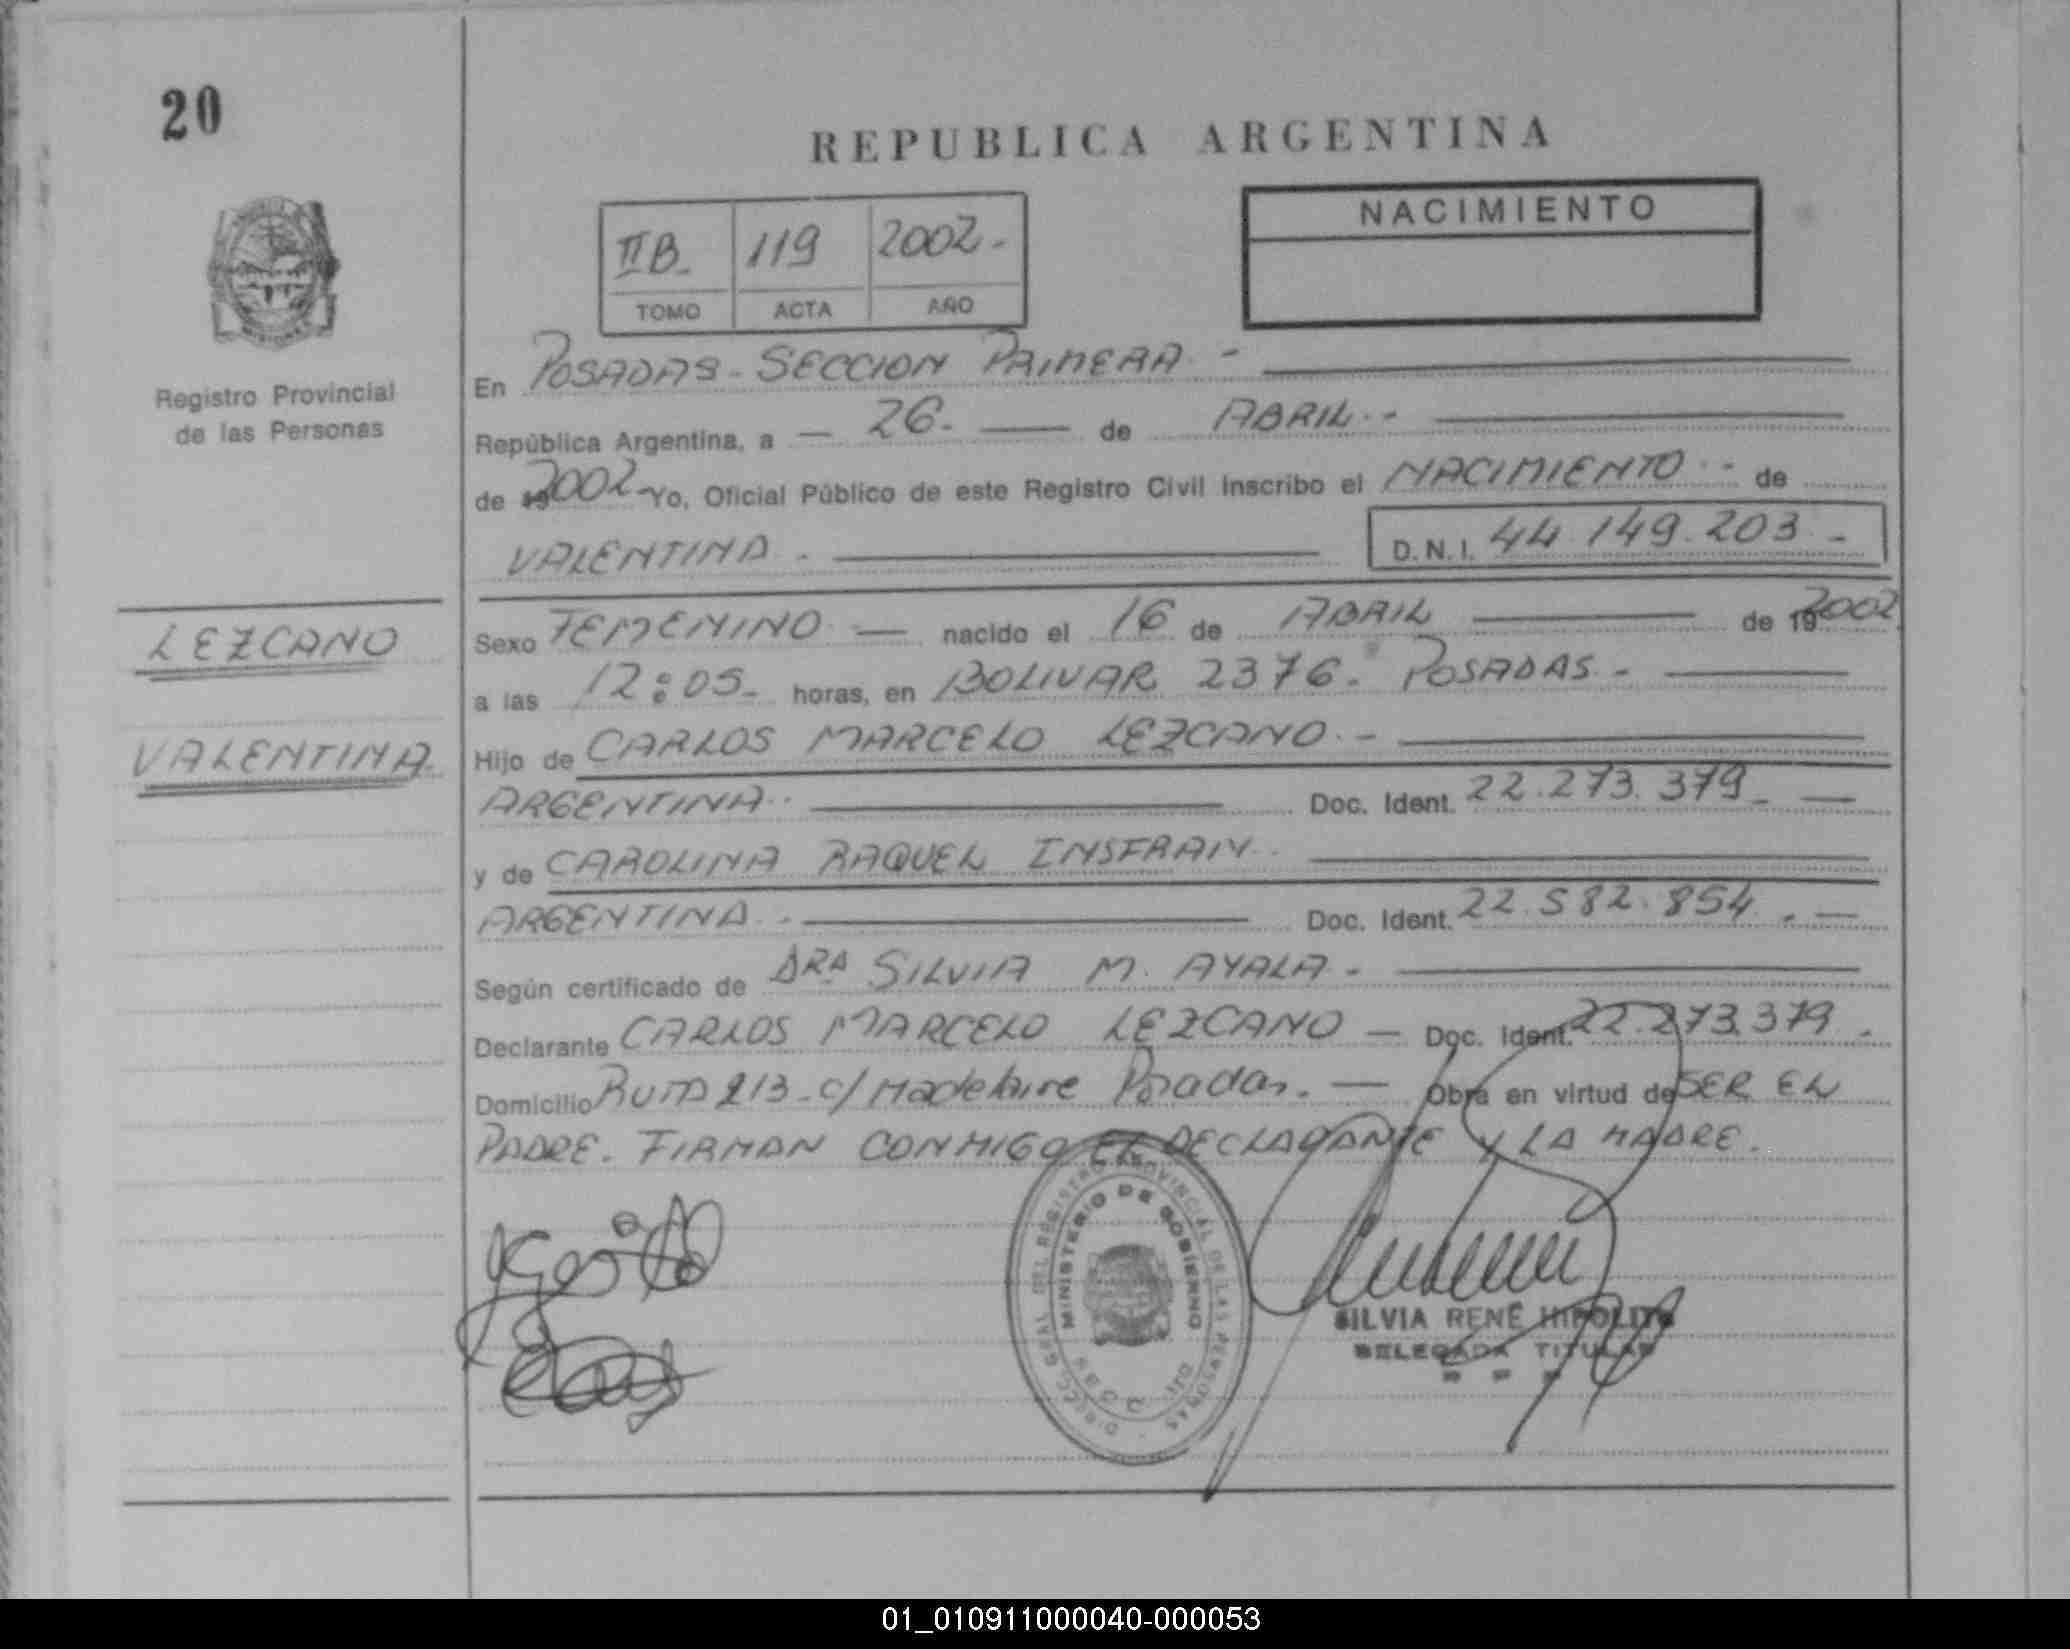 20
REPUBLICA ARGENTINA
NACIMIENTO
IIB. 119 2002.-
TOMO ACTA AÑO
Registro Provincial
de las Personas
LEZCANO
VALENTINA
En POSADAS - SECCION PRIMERA -
República Argentina, a - 26. de ABRIL.-
de 19 2002 - Yo, Oficial Público de este Registro Civil inscribo el NACIMIENTO - de
VALENTINA. D.N.I. 44.149.203.-
Sexo FEMENINO - nacido el 16 de ABRIL de 19 2002
a las 12:05. horas, en BOLIVAR 2376. POSADAS.-
Hijo de CARLOS MARCELO LEZCANO.-
ARGENTINA. Doc. Ident. 22.273.379.-
y de CAROLINA RAQUEL INSFRAN.
ARGENTINA.- Doc. Ident. 22.582.854.-
Según certificado de DRA SILVIA M. AYALA.-
Declarante CARLOS MARCELO LEZCANO - Doc. Ident. 22.273.379.
Domicilio RUTA 213 - c/ Posadas. - Obra en virtud de SER EL
PADRE. FIRMAN CONMIGO EL DECLARANTE Y LA MADRE.
DIREC. GRAL DEL REGISTRO PROVINCIAL DE LAS PERSONAS
MINISTERIO DE GOBIERNO
SILVIA RENÉ HIPOLITO
DELEGADA TITULAR
01_010911000040-000053